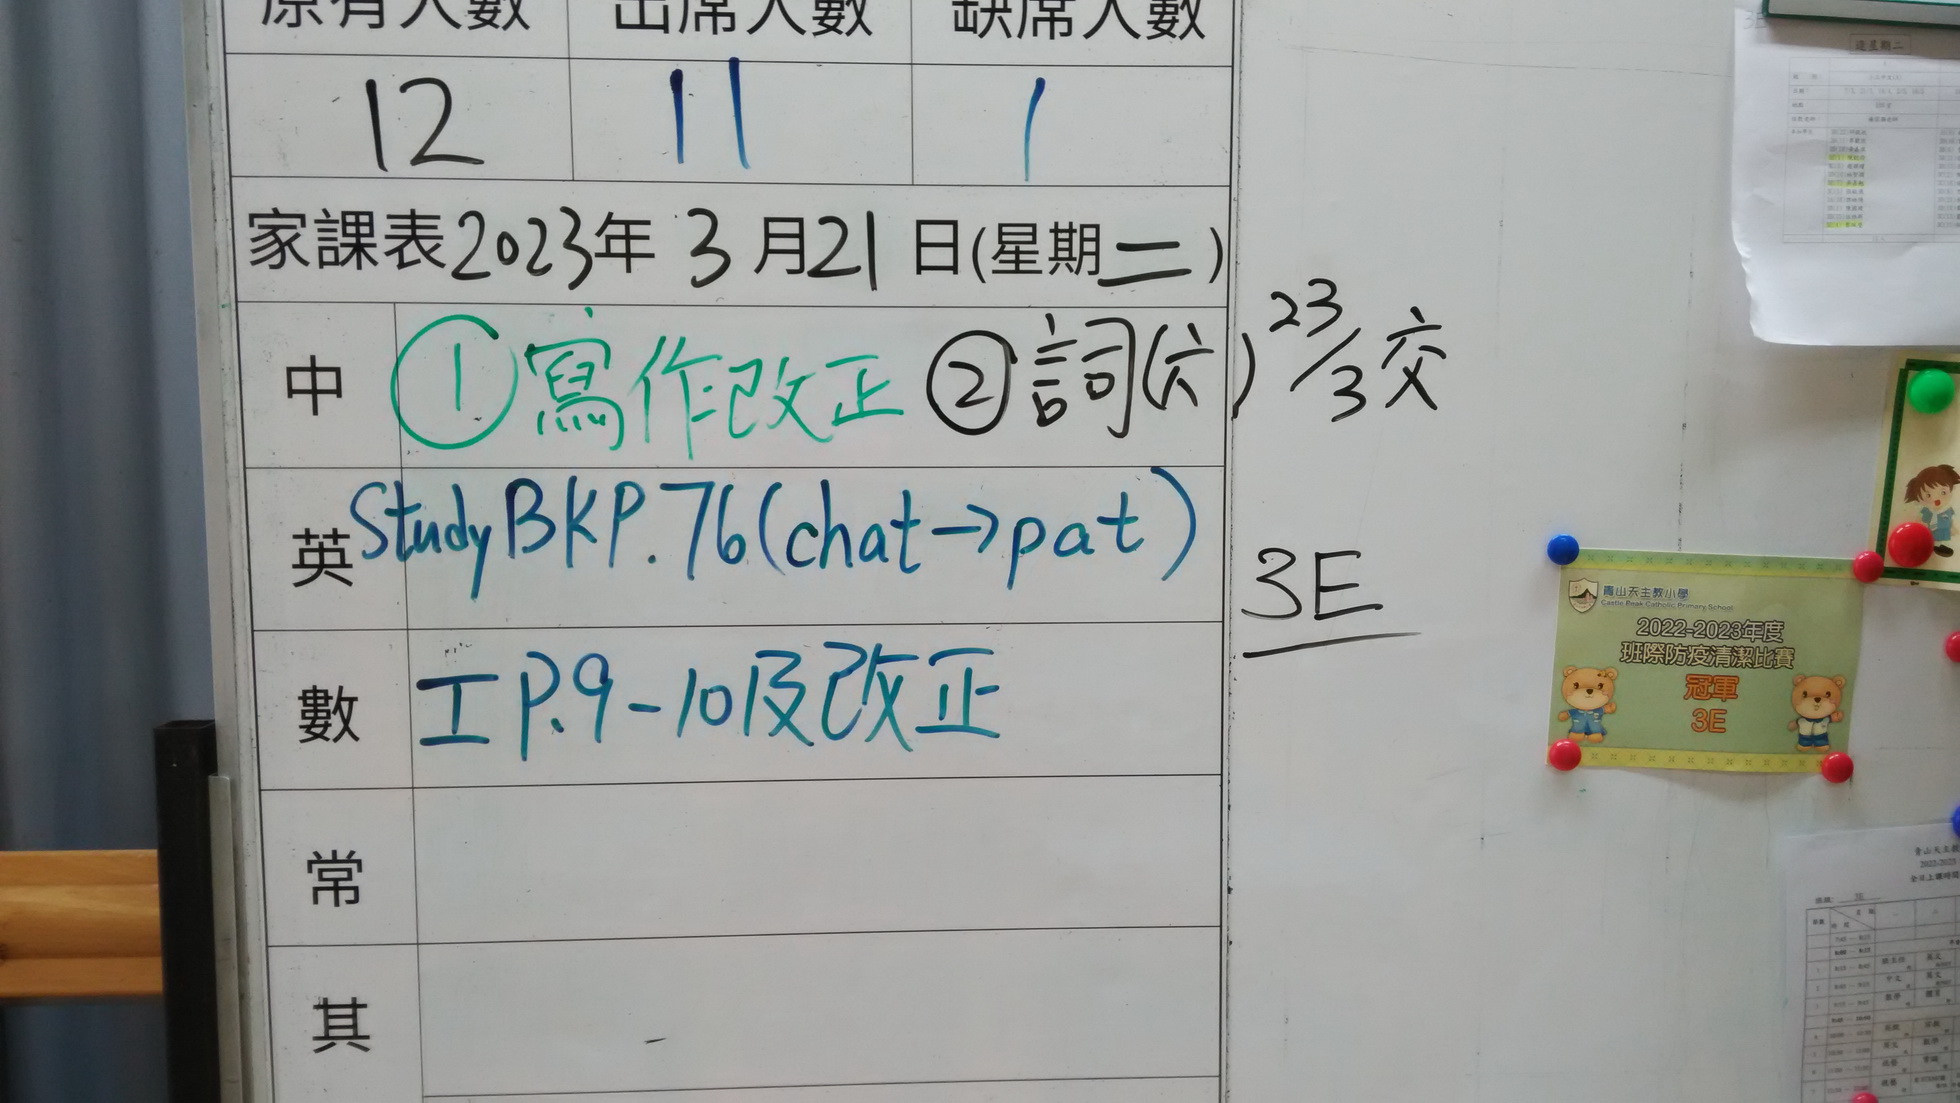 原有人數 出席人數 缺席人數
12 11 1
家課表2023年3月21日(星期二)
中 ①寫作改正 ②詞(六) 23/3交
英 Study BK P.76(chat→pat)
3E
數 工 P.9-10及改正
常
其
逢星期二
青山天主教小學
Castle Peak Catholic Primary School
2022-2023年度
班際防疫清潔比賽
冠軍
3E